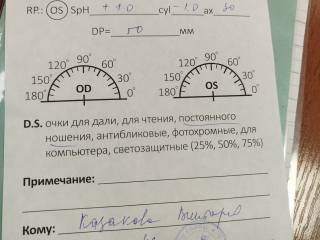 RP.: OS SpH + 1.0 cyl - 1.0 ax 80
DP= 50 мм
120° 90° 60° 120° 90° 60°
150° 30° 150° 30°
180° OD 0° 180° OS 0°
D.S. очки для дали, для чтения, постоянного
ношения, антибликовые, фотохромные, для
компьютера, светозащитные (25%, 50%, 75%)
Примечание:
Кому: Казакова